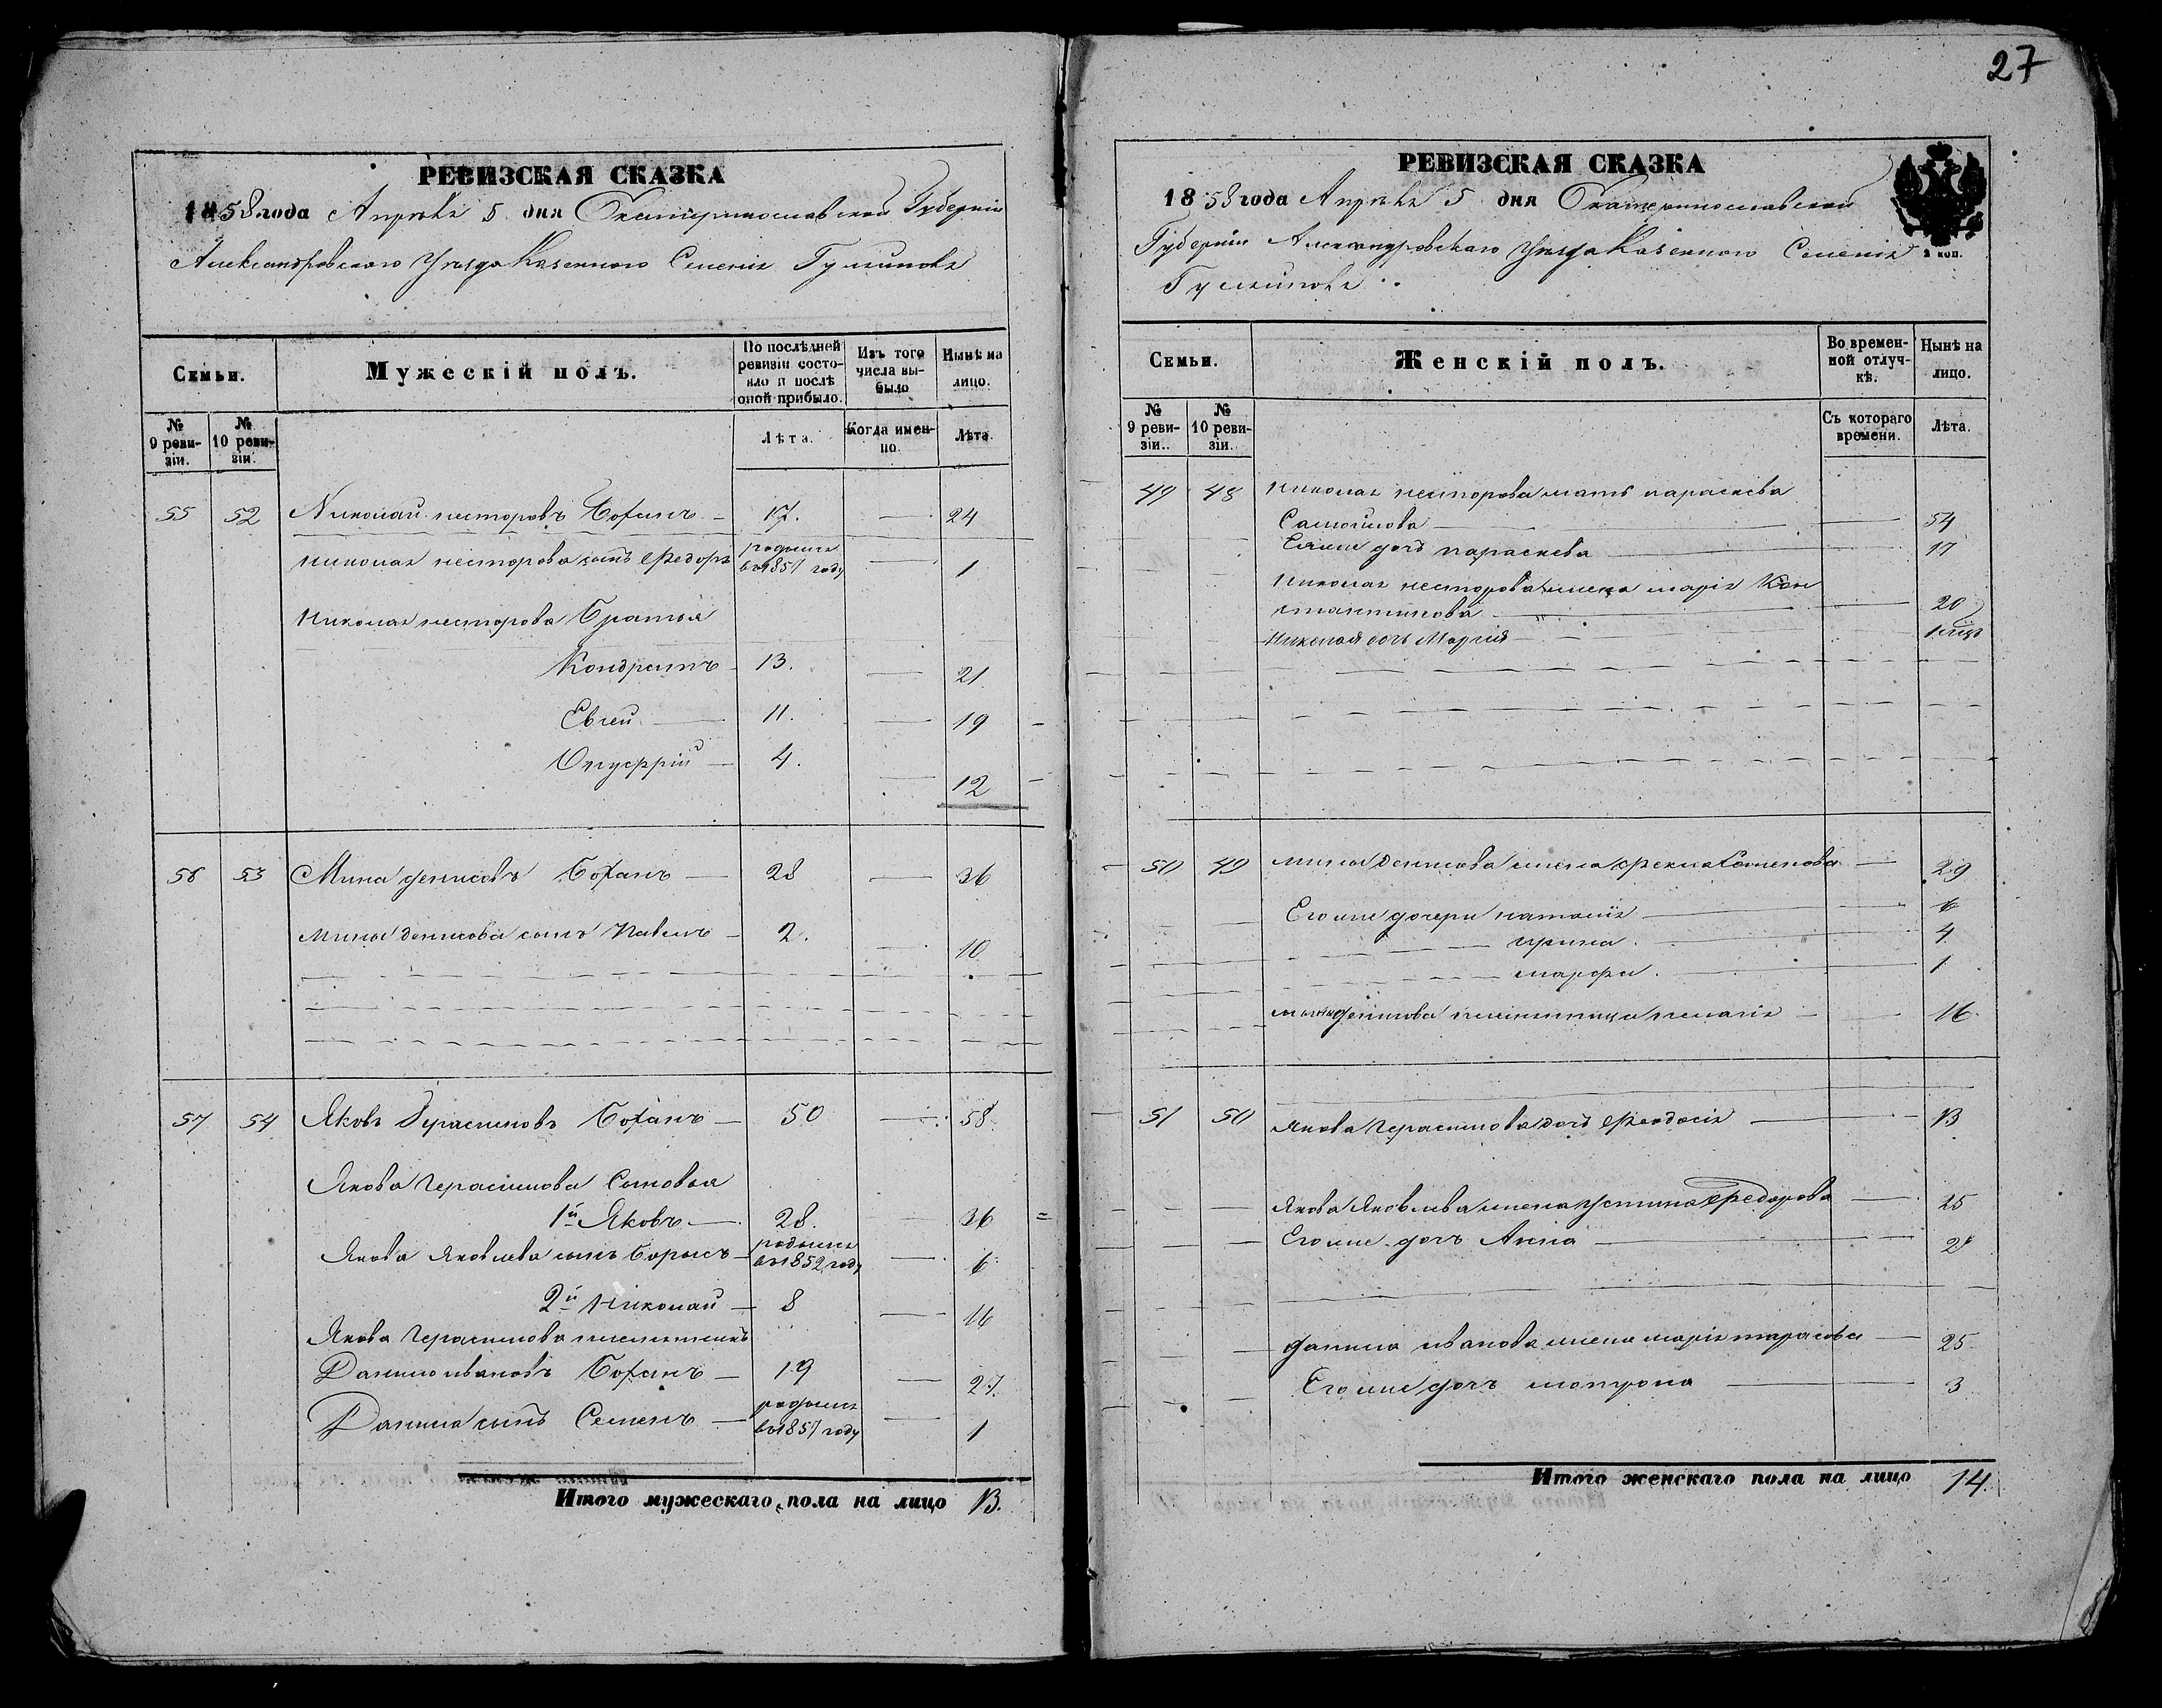 27
РЕВИЗСКАЯ СКАЗКА
1858 года Апреля 5 дня Екатеринославской Губернии
Александровского Уезда Казенного Селения
Семьи.
Мужескій полъ.
По послѣдней ревизіи состо-
яло и послѣ
оной прибыло.
Изъ того
числа вы-
было
Нынѣ на
лицо.
№
9 реви-
зіи.
№
10 реви-
зіи.
Лѣта.
Когда имен-
но.
Лѣта.
55 52 Николай несторовъ Боханъ 17. 24
николая несторова сынъ Федоръ родился в 1857 году 1
николая несторова Братья
Кондратъ 13. 21
Евсей 11. 19
Онуфрій 4. 12
56 53 Мина денисовъ Боханъ 28 36
мины денисова сынъ Павелъ 2. 10
57 54 Яковъ Герасимовъ Боханъ 50 58
Якова Герасимова Сыновья
1й Яковъ 28. 36
Якова Яковлева сынъ Борисъ родился в 1852 году 6
2й Николай 8 16
Якова Герасимова племянникъ
Данило ивановъ Боханъ 19 27.
Данила сынъ Семенъ родился в 1857 году 1
Итого мужескаго пола на лицо 13.
РЕВИЗСКАЯ СКАЗКА
1858 года Апреля 5 дня Екатеринославской
Губернии Александровского Уезда Казенного Селения
2 коп.
Семьи.
Женскій полъ.
Во времен-
ной отлуч-
кѣ.
Нынѣ на
лицо.
№
9 реви-
зіи.
№
10 реви-
зіи.
Съ котораго
времени.
Лѣта.
49 48 николая несторова мать параскева
Самойлова 54
Ея же дочь параскева 17
николая несторова жена марія Кон
стантинова 20
Николая дочь Марія
50 49 мины денисова жена фекла Семенова 29
Его же дочери наталія 6
ирина. 4
марфа. 1
мины денисова племянница пелагія 16
51 50 якова герасимова дочь Феодосія 13
якова Яковлева жена устина Федорова 25
Его же дочь Анна 2
данила иванова жена марія тарасова 25
Его же дочь матрона 3
Итого женскаго пола на лицо 14.